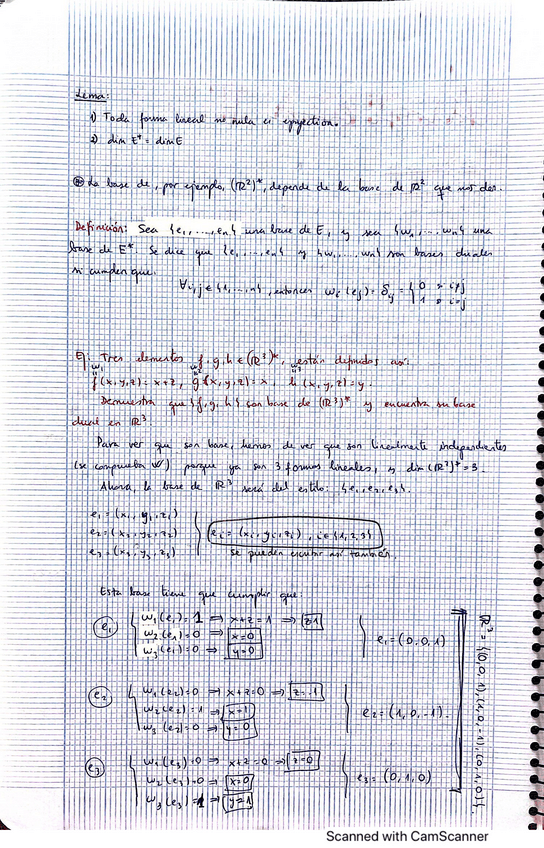 Lema:
1) Toda forma lineal no nula es epiyection.
2) dim E* = dim E
⊛ La base de, por ejemplo, (ℝ²)*, depende de la base de ℝ² que nos den.
Definición: Sea {e₁, ..., eₙ} una base de E, y sea {w₁, ... wₙ} una
base de E*. Se dice que {e₁, ..., eₙ} y {w₁, ... wₙ} son bases duales
si cumplen que:
∀i,j ∈ {1, ..., n}, entonces wᵢ(eⱼ) = δᵢⱼ = { 0 si i≠j
1 si i=j
Ej: Tres elementos f, g, h ∈ (ℝ³)*, están definidos así:
w₁ w₂ w₃
f(x,y,z) = x+z, g(x,y,z) = x, h(x,y,z) = y.
Demuestra que {f, g, h} son base de (ℝ³)* y encuentra su base
dual en ℝ³
Para ver que son base, hemos de ver que son linealmente independientes
(se comprueba) porque ya son 3 formas lineales, y dim (ℝ³)* = 3.
Ahora, la base de ℝ³ será del estilo: {e₁, e₂, e₃}.
e₁ = (x₁, y₁, z₁)
e₂ = (x₂, y₂, z₂) eᵢ = (xᵢ, yᵢ, zᵢ), i ∈ {1,2,3}
e₃ = (x₃, y₃, z₃) se pueden escribir así también.
Esta base tiene que cumplir que:
w₁(e₁) = 1 ⇒ x+z = 1 ⇒ z=1
e₁ w₂(e₁) = 0 ⇒ x=0 e₁ = (0,0,1)
w₃(e₁) = 0 ⇒ y=0
w₁(e₂) = 0 ⇒ x+z = 0 ⇒ z=-1
e₂ w₂(e₂) = 1 ⇒ x=1 e₂ = (1,0,-1).
w₃(e₂) = 0 ⇒ y=0
w₁(e₃) = 0 ⇒ x+z = 0 ⇒ z=0
e₃ w₂(e₃) = 0 ⇒ x=0 e₃ = (0,1,0)
w₃(e₃) = 1 ⇒ y=1
ℝ³ = {(0,0,1), (1,0,-1), (0,1,0)}.
Scanned with CamScanner